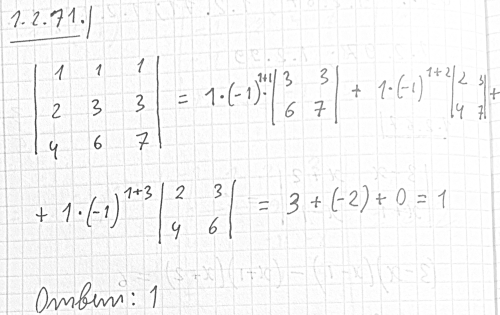 1.2.71.
| 1 1 1 |
| 2 3 3 | = 1·(-1)^{1+1}·| 3 3 ; 6 7 | + 1·(-1)^{1+2} | 2 3 ; 4 7 | +
| 4 6 7 |
+ 1·(-1)^{1+3} | 2 3 ; 4 6 | = 3 + (-2) + 0 = 1
Ответ: 1